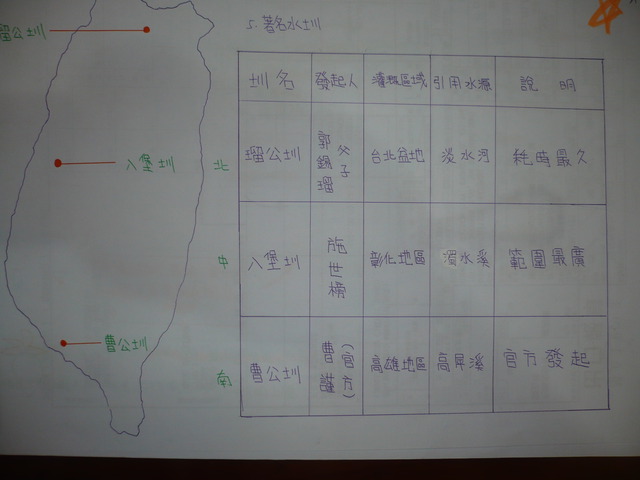 5.著名水圳
瑠公圳
八堡圳
曹公圳
圳名 發起人 灌溉區域 引用水源 說明
北 瑠公圳 郭錫瑠父子 台北盆地 淡水河 耗時最久
中 八堡圳 施世榜 彰化地區 濁水溪 範圍最廣
南 曹公圳 曹謹(官方) 高雄地區 高屏溪 官方發起